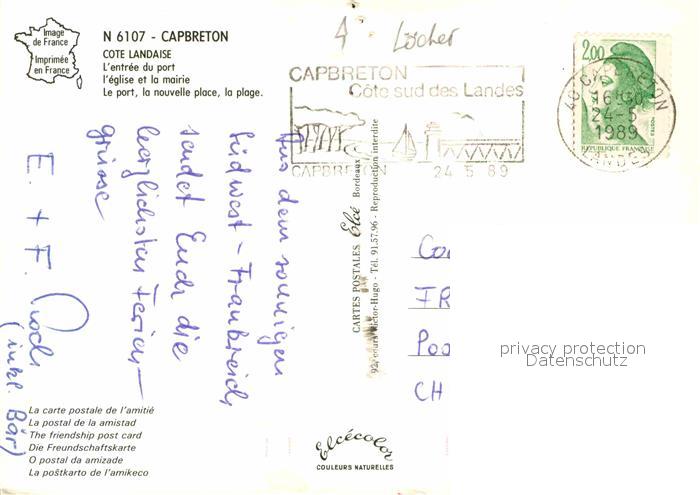 Image
de France
Imprimée
en France
N 6107 - CAPBRETON
COTE LANDAISE
L'entrée du port
l'église et la mairie
Le port, la nouvelle place, la plage.
4 Löcher
CAPBRETON
Côte sud des Landes
CAPBRETON 24 5 89
2,00
REPUBLIQUE FRANÇAISE
40 CAPBRETON
16H30
24-5
1989
LANDES
Aus dem sonnigen
Südwest-Frankreich
sendet Euch die
herzlichsten Ferien-
grüsse
E. + F.
(inkl. Bär)
CARTES POSTALES Elcé Bordeaux
92, cours Victor-Hugo - Tél. 91.57.96 - Reproduction interdite
CH
privacy protection
Datenschutz
La carte postale de l'amitié
La postal de la amistad
The friendship post card
Die Freundschaftskarte
O postal da amizade
La poŝtkarto de l'amikeco
Elcécolor
COULEURS NATURELLES